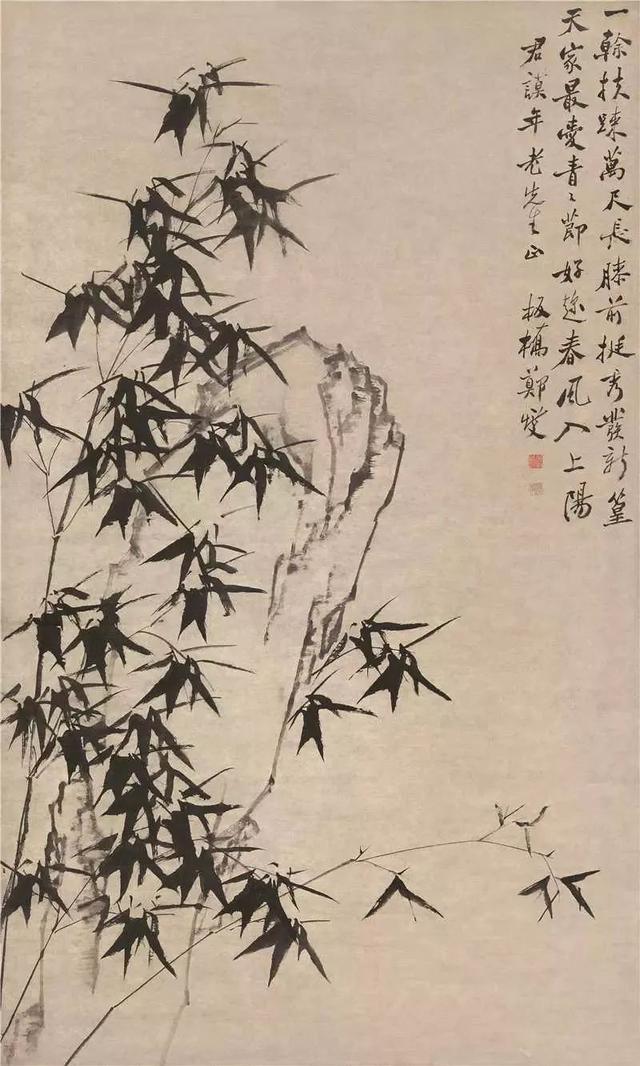 一幹扶踈萬尺長膝前挺秀發新篁
天家最愛青〻節好趂春風入上陽
君謨年老先生正 板橋鄭燮